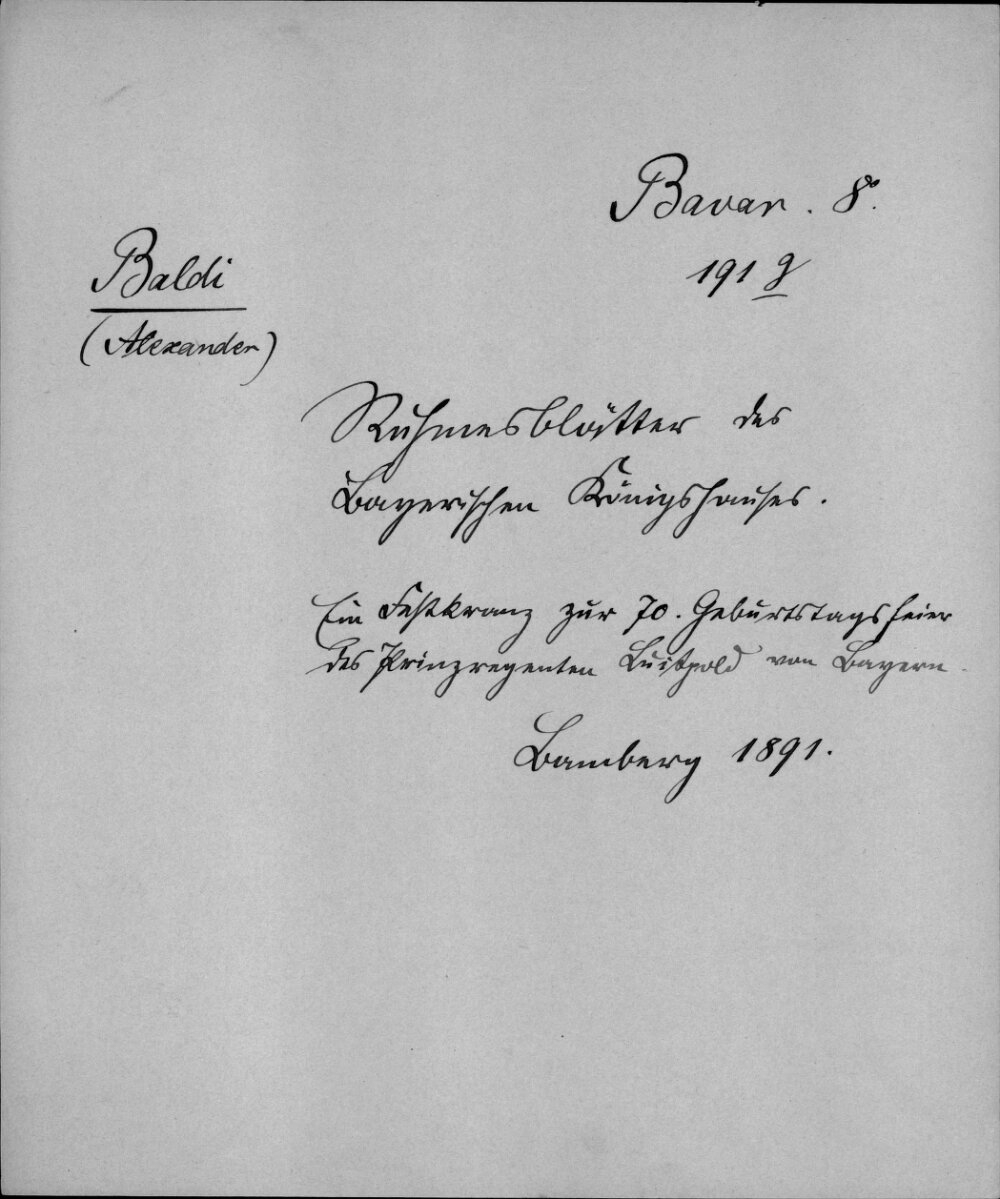 Bavar. 8°.
191 g
Baldi
(Alexander)
Ruhmesblätter des
Bayerischen Königshauses.
Ein Festkranz zur 70. Geburtstagsfeier
des Prinzregenten Luitpold von Bayern.
Bamberg 1891.